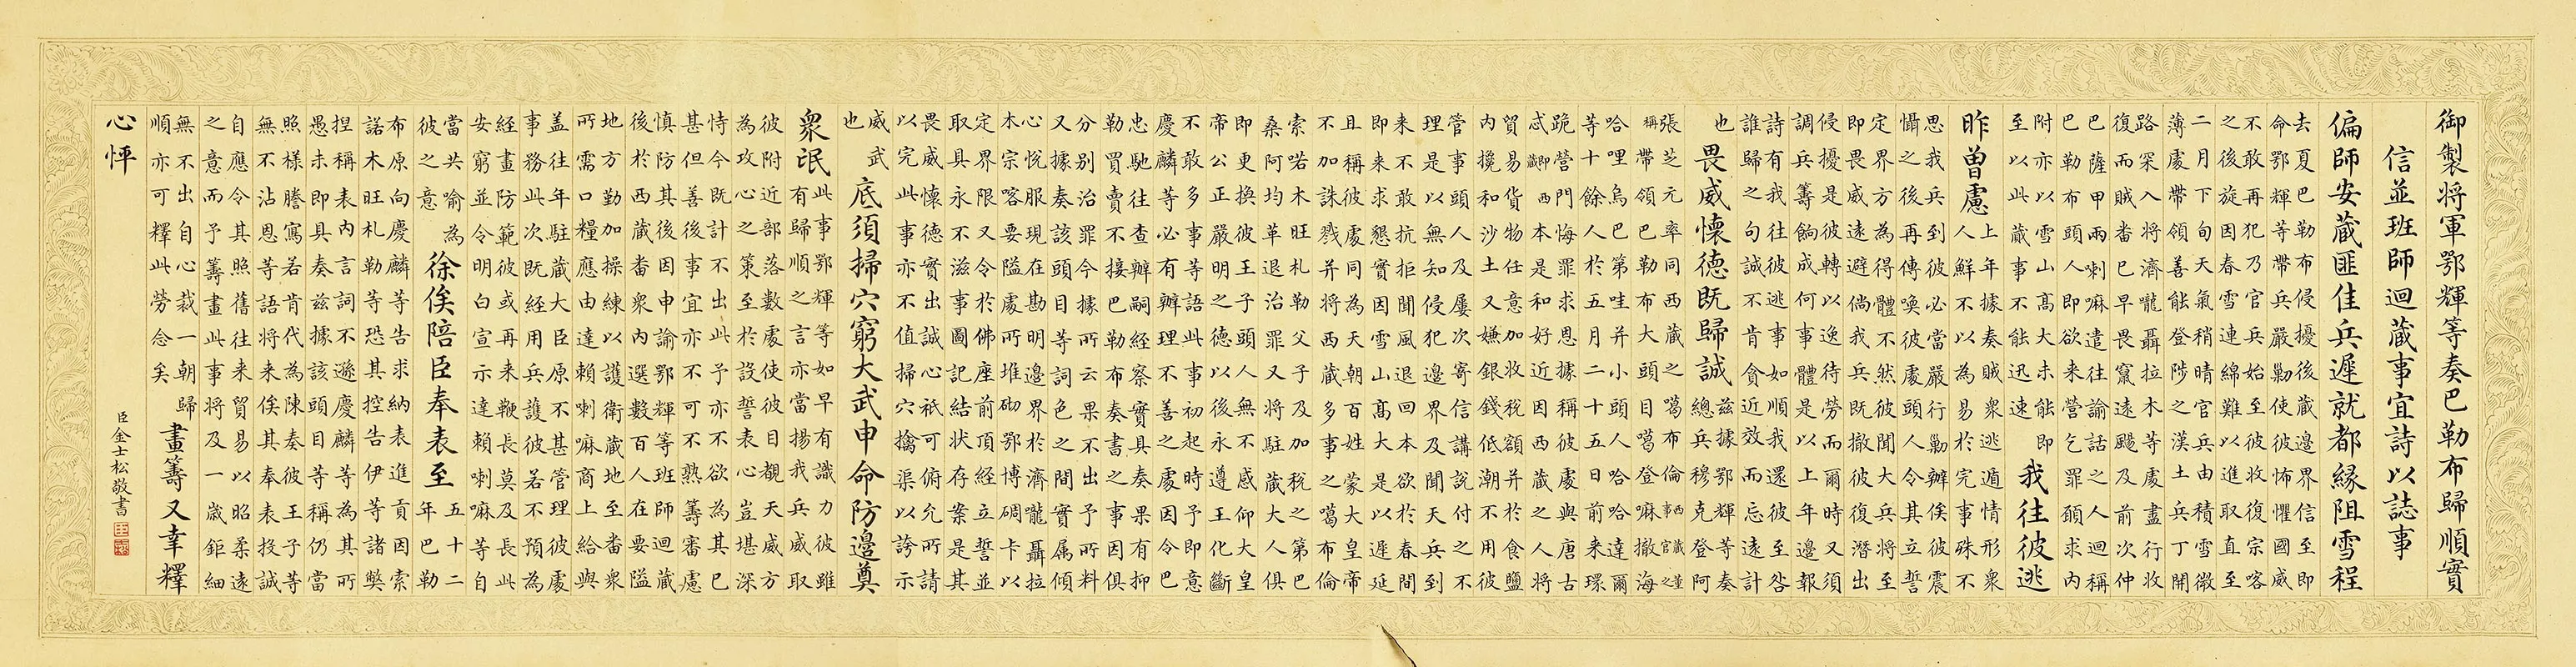 御製將軍鄂輝等奏巴勒布歸順實
信並班師迴藏事宜詩以誌事
偏師安藏匪佳兵遲就都緣阻雪程
去夏巴勒布侵擾後藏邊界信至即
命鄂輝等帶兵嚴勦使彼怖懼國威
不敢再犯乃官兵始至彼收復宗喀
之後旋因春雪連綿難以進取直至
二月下旬天氣稍晴官兵由積雪微
薄處帶領善能登陟土漢兵丁開
路罙入將濟嚨聶拉木等處盡行收
復而賊番巳早畏竄遠颺及前次仲
巴薩甲兩喇嘛遣往諭話之人迴稱
巴勒布頭人即欲来營乞罪願求內
附亦以雪山高大未能即
至以此藏事不能迅速
我往彼逃
昨曾慮
上年據奏賊衆逃遁情形衆
人鮮不以為易於完事殊不
思我兵到彼必當嚴行勦辦俟彼震
懾之後再傳喚彼處頭人令其立誓
定界方為得體不然彼聞大兵將至
即畏威遠避倘我兵既撤彼復潛出
侵擾是彼轉以逸待勞而爾時又須
調兵籌餉成何事體是以上年邊報
詩有我往彼逃事如順我還彼至咎
誰歸之句誠不肯貪近效而忘遠計
也
畏威懷德既歸誠
茲據鄂輝等奏
總兵穆克登阿
張芝元率同西藏之噶布倫
稱帶領巴勒布大頭目噶登嘛撒海
哈哩烏巴第哇并小頭人哈哈達爾
等十餘人於五月二十五日前来環
跪營門悔罪求恩據稱彼處與唐古
忒即西藏本是和好近因西藏之人將
貿易貨物任意加收稅額并於食鹽
內攙和沙土又嫌銀錢低潮不用彼
管事頭人及屢次寄信講說付之不
理是以無知侵犯邊界及聞天兵到
来不敢抗拒聞風退回本欲於春間
即来求懇實因雪山高大是以遲延
且稱彼處同為天朝百姓蒙大皇帝
不加誅戮并將西藏多事之噶布倫
索喏木旺札勒父子及加稅之第巴
桑阿均革退治罪又將駐藏大人俱
即更換彼王子頭人無不感仰大皇
帝公正嚴明之德以後永遵王化斷
不敢多事等語此事初起時予即意
慶麟等必有辦理不善之處因令巴
忠馳往查辦嗣經察實具奏果有抑
勒買賣不接巴勒布奏書之事因俱
分別治罪今據所云果不出予所料
又據奏該頭目等詞色之間實属傾
心悅服現在勘明邊界於濟嚨聶拉
木宗喀要隘處所堆砌鄂博碉卡以
定界限又令於佛座前頂經立誓並
取具永不滋事圖記結狀存案是其
畏威懷德實出誠心祇可俯允所請
以完此事亦不值掃穴擒渠以誇示
威武
也
底須掃穴窮大武申命防邊奠
衆氓
此事鄂輝等如早有識力彼雖
有歸順之言亦當揚我兵威取
彼附近部落數處使彼目覩天威方
為攻心之策至於設誓表心豈堪深
恃今既計不出此予亦不欲為其已
甚但善後事宜亦不可不熟籌審慮
慎防其後因申諭鄂輝等班師迴藏
後於西藏番衆內選數百人在要隘
地方勤加操練以護衛藏地至番衆
所需口糧應由達賴喇嘛商上給與
盖往年駐藏大臣原不甚管理彼處
事務此次既經用兵護彼若不預為
經畫防範彼或再来鞭長莫及長此
安窮並令明白宣示達賴喇嘛等自
當共喻為
彼之意
徐俟陪臣奉表至
五十二
年巴勒
布原向慶麟等告求納表進貢因索
諾木旺札勒等恐其控告伊等諸獘
捏稱表內言詞不遜慶麟等為其所
愚未即具奏茲據該頭目等稱仍當
照樣謄寫若肯代為陳奏彼王子等
無不沾恩等語將来俟其奉表投誠
自應令其照舊往来貿易以昭柔遠
之意而予籌畫此事將及一歲鉅細
無不出自心裁一朝歸
順亦可釋此勞念矣
畫籌又幸釋
心怦
臣金士松敬書